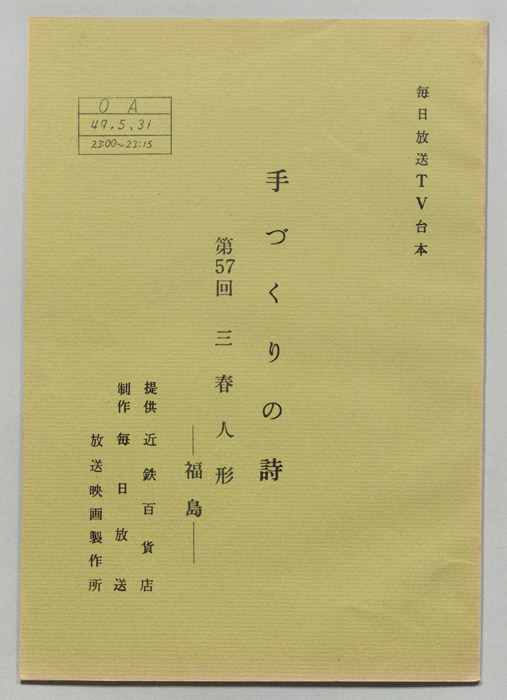 毎日放送TV台本
手づくりの詩
第57回 三春人形
―福島―
提供 近鉄百貨店
制作 毎日放送
放送映画製作所
O A
49.5.31
23:00~23:15